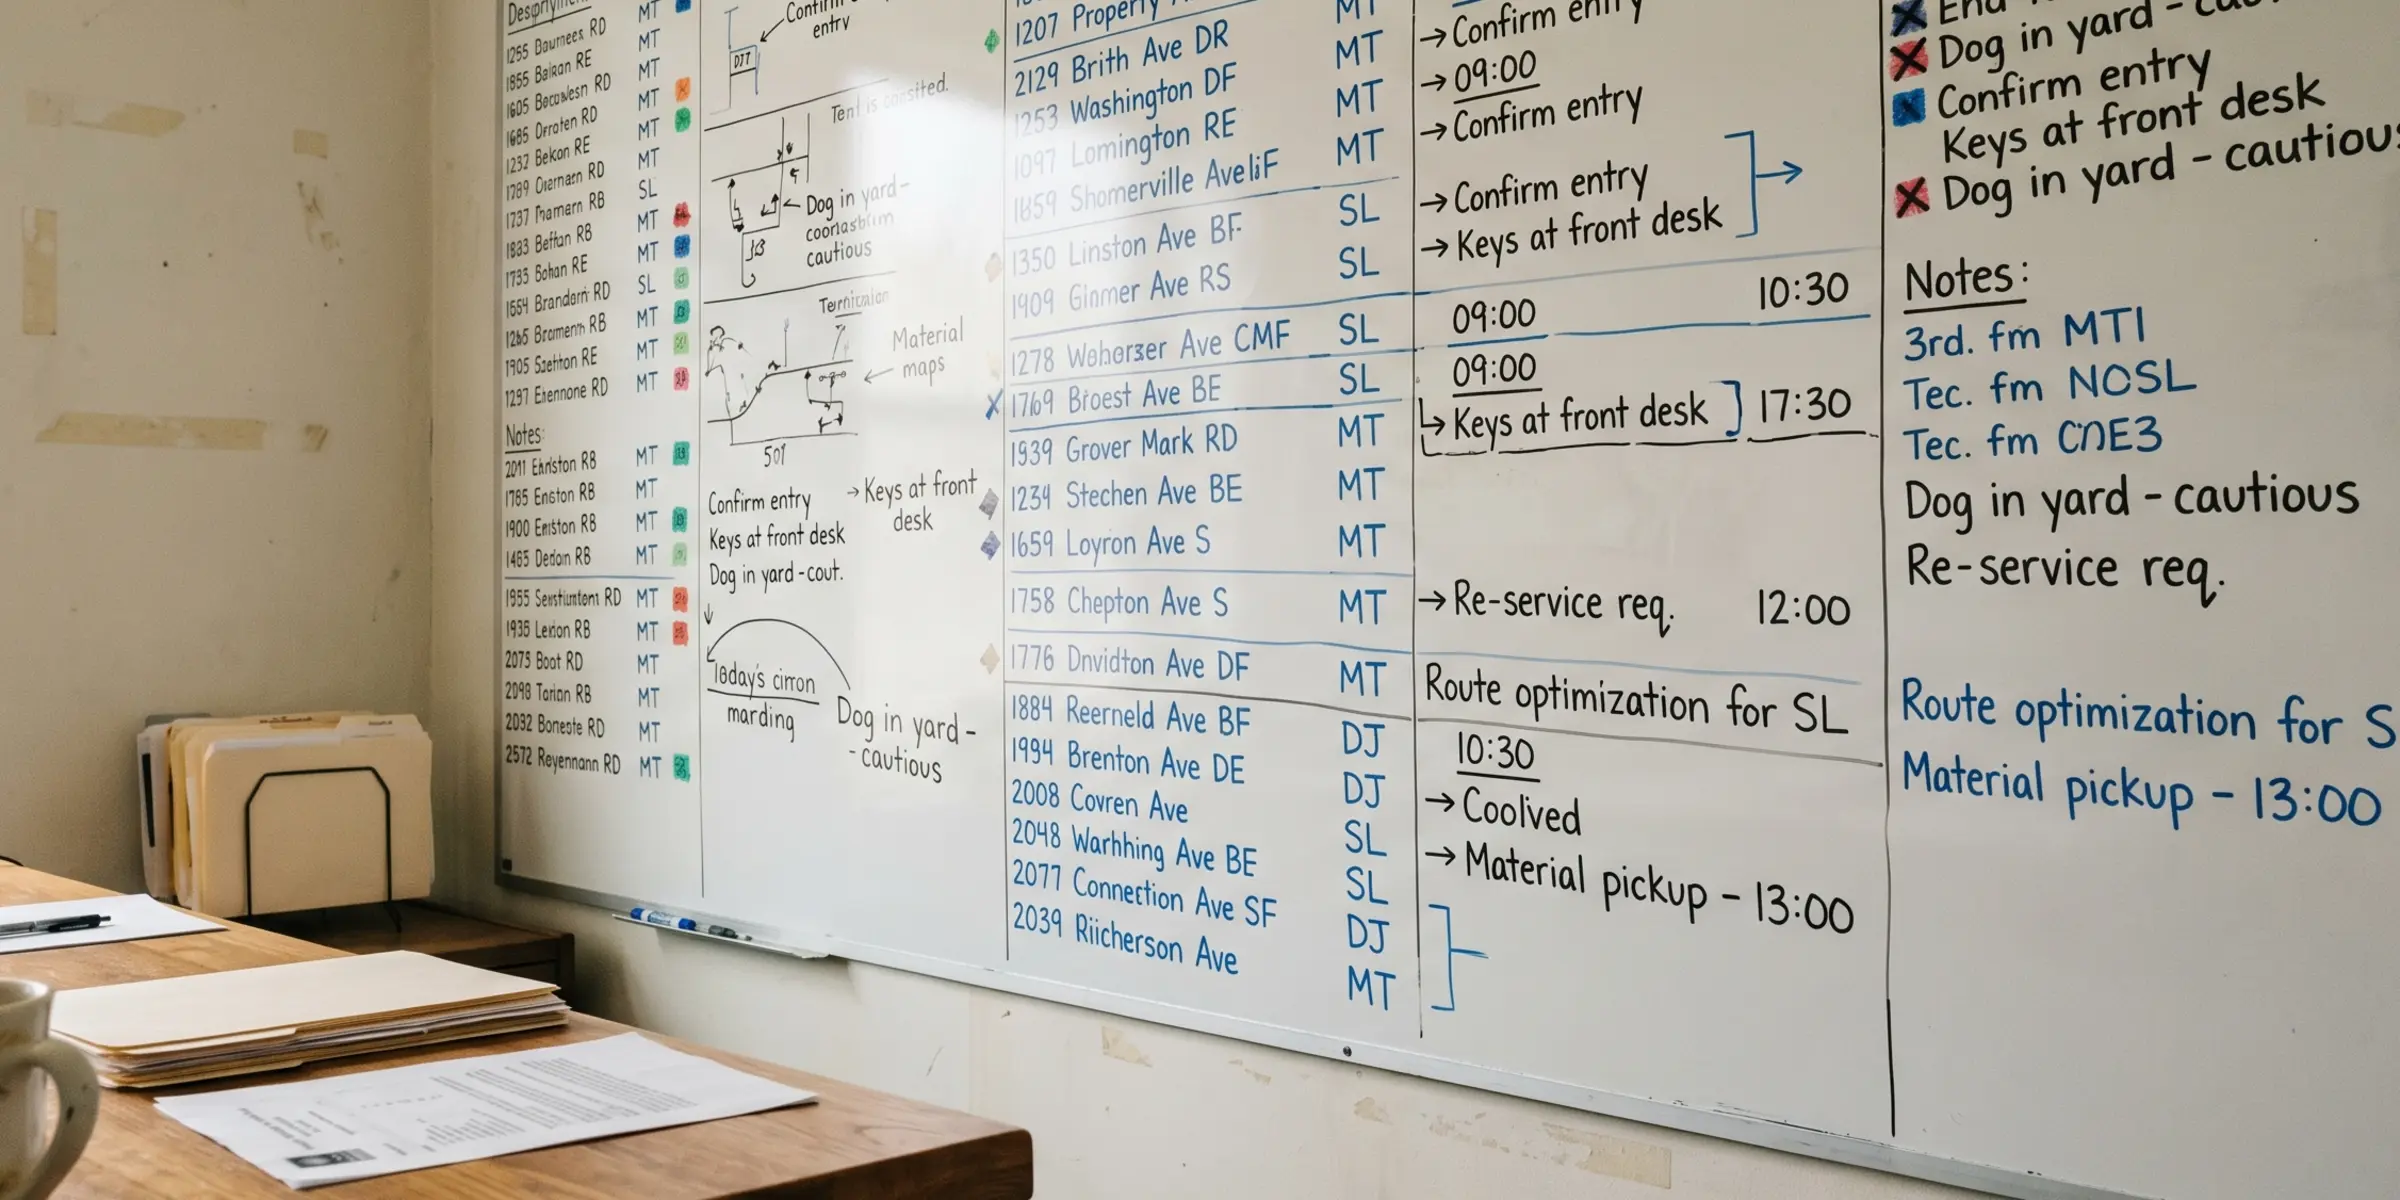 1265 Baurnees RD MT
1855 Baiean RE MT
1605 Bocowlesn RD MT
1685 Orroten RD MT
1237 Bekon RE MT
1789 Oiernaen RD SL
1737 Thamern RB MT
1833 Beffan RB MT
1733 Bohan RE SL
1664 Brandorn RD MT
1265 Bromenth RB MT
1905 Szethton RE MT
1297 Ehennone RD MT
Notes:
2011 Ehriston RB MT
1785 Enston RB MT
1900 Enrston RB MT
1465 Dedoin RB MT
1955 Sewstiumtent RD MT
1935 Lexion RB MT
2075 Boot RD MT
2098 Tarian RB MT
2032 Boneste RD MT
2572 Reyennann RD MT
entry
DJT
Tent is
Dog in yard -
cautious
Material
maps
50'
Confirm entry
Keys at front desk
Dog in yard - cout.
→ Keys at front
desk
18day's cirron
marding
Dog in yard -
- cautious
1207 Property MT
2129 Brith Ave DR MT
1253 Washington DF MT
1097 Lomington RE MT
1659 Shomerville Ave
SL
1350 Linston Ave BF SL
1909 Ginmer Ave RS
1278 Wohorzer Ave CMF SL
1769 Broest Ave BE SL
1939 Grover Mark RD MT
1234 Stechen Ave BE MT
1659 Loyron Ave S MT
1758 Chepton Ave S MT
1776 Dnvidton Ave DF MT
1884 Reerneld Ave BF DJ
1994 Brenton Ave DE DJ
2008 Covren Ave SL
2048 Warhhing Ave BE SL
2077 Connection Ave SF DJ
2039 Riicherson Ave MT
→ Confirm entry
→ 09:00
→ Confirm entry
→ Confirm entry
→ Keys at front desk
09:00 10:30
09:00
Keys at front desk 17:30
→ Re-service req. 12:00
Route optimization for SL
10:30
→ Coolved
→ Material pickup - 13:00
Dog in yard -
Confirm entry
Keys at front desk
Dog in yard - cautiou
Notes:
3rd. fm MTI
Tec. fm NOSL
Tec. fm CNE3
Dog in yard - cautious
Re-service req.
Route optimization for S
Material pickup - 13:00